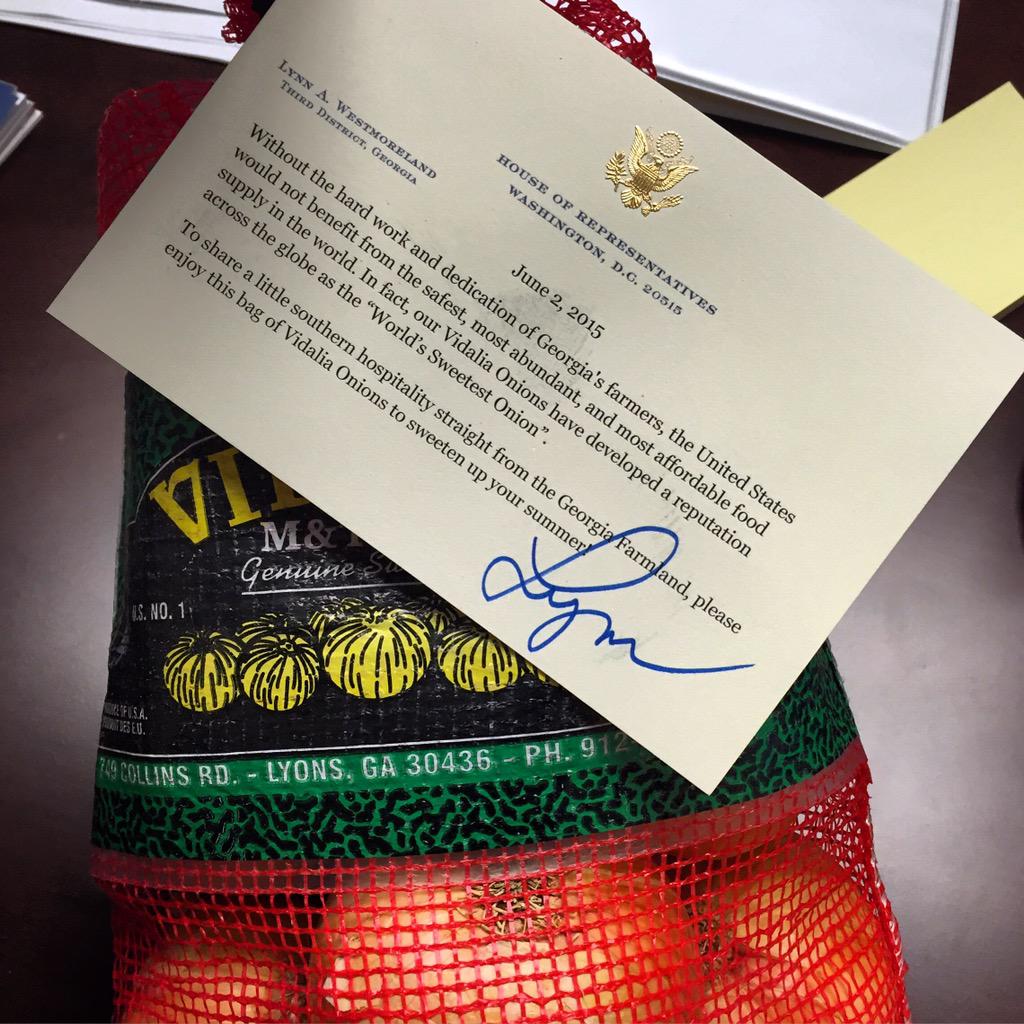 LYNN A. WESTMORELAND
THIRD DISTRICT, GEORGIA
HOUSE OF REPRESENTATIVES
WASHINGTON, D.C. 20515
June 2, 2015
Without the hard work and dedication of Georgia's farmers, the United States
would not benefit from the safest, most abundant, and most affordable food
supply in the world. In fact, our Vidalia Onions have developed a reputation
across the globe as the "World's Sweetest Onion".
To share a little southern hospitality straight from the Georgia Farmland, please
enjoy this bag of Vidalia Onions to sweeten up your summer.
Lynn
M&
Genuine
U.S. NO. 1
OF U.S.A.
749 COLLINS RD. - LYONS, GA 30436 - PH. 912